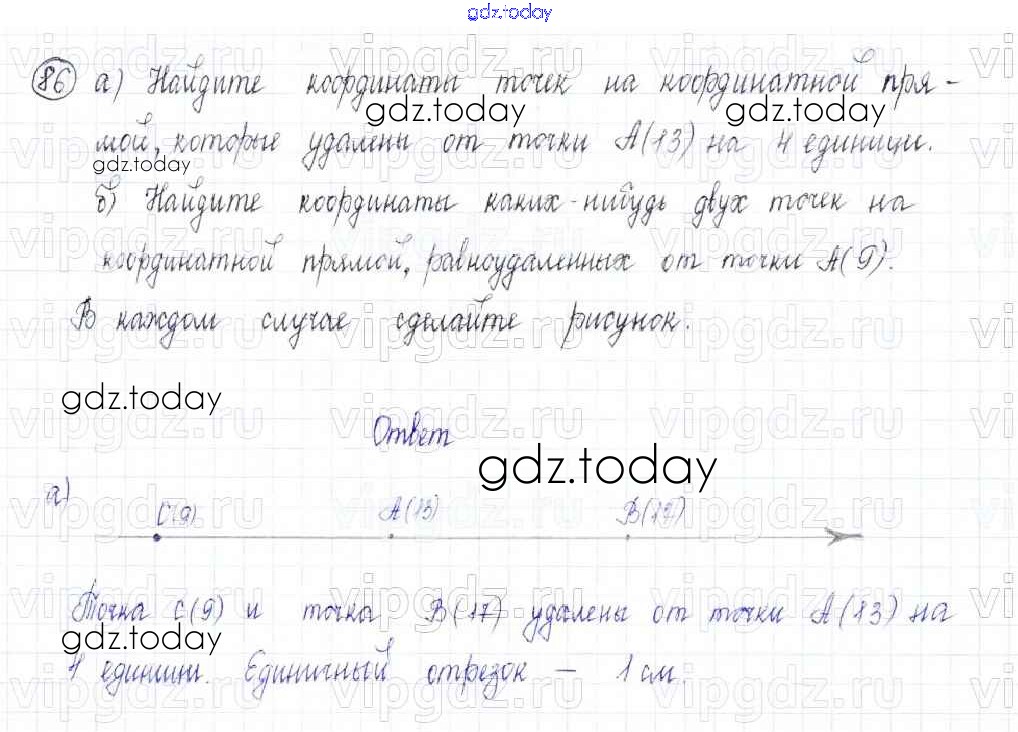 gdz.today
86 а) Найдите координаты точек на координатной пря-
gdz.today gdz.today
мой, которые удалены от точки А(13) на 4 единицы.
gdz.today
б) Найдите координаты каких-нибудь двух точек на
координатной прямой, равноудаленных от точки А(9).
В каждом случае сделайте рисунок.
gdz.today
Ответ
gdz.today
а)
С(9) А(13) В(17)
Точка С(9) и точка В(17) удалены от точки А(13) на
gdz.today
4 единицы. Единичный отрезок – 1 см.
vipgdz.ru